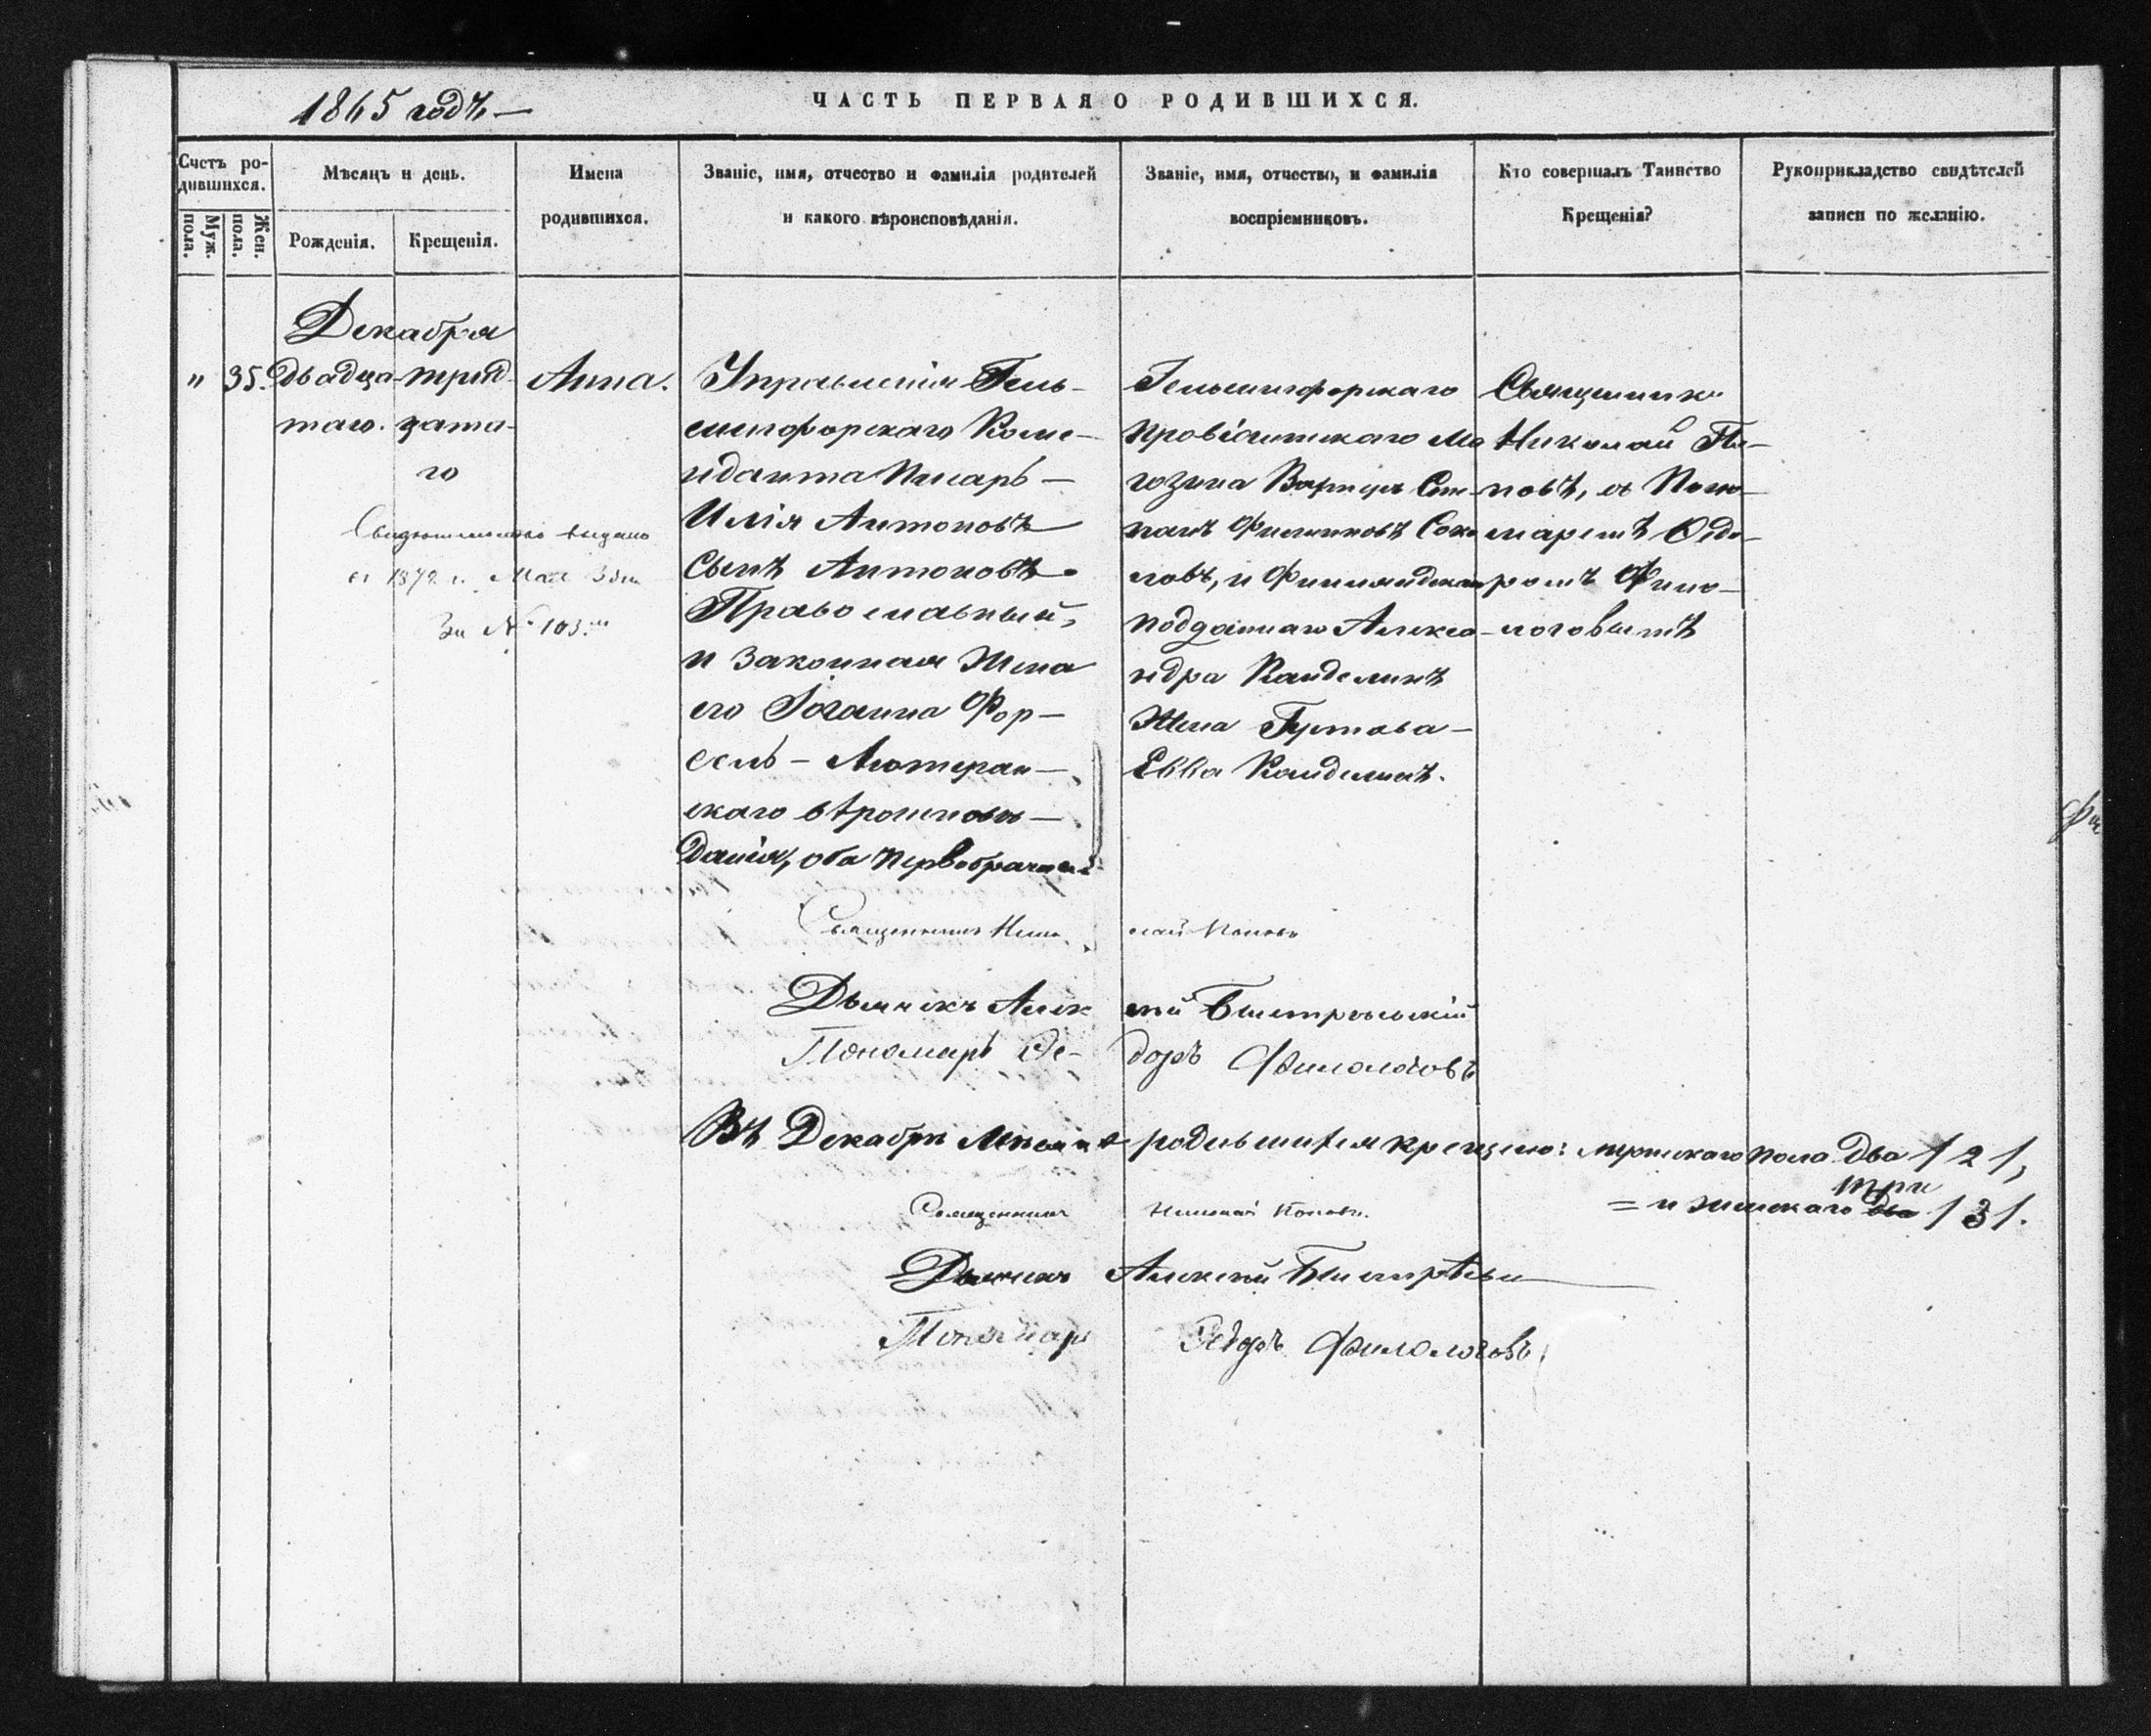 1865 годъ
ЧАСТЬ ПЕРВАЯ О РОДИВШИХСЯ.
Счетъ ро-
дившихся.
Муж. пола.
Жен. пола.
Мѣсяцъ и день.
Рожденія.
Крещенія.
Имена
родившихся.
Званіе, имя, отчество и фамилія родителей
и какого вѣроисповѣданія.
Званіе, имя, отчество, и фамилія
воспріемниковъ.
Кто совершалъ Таинство
Крещенія?
Рукоприкладство свидѣтелей
записи по желанію.
Декабря
"
35.
двадца-
таго.
трид-
цата-
го
Свидѣтельство выдано
1872 г. Мая
За № 103.
Анна.
Управленія Гель-
сингфорскаго Коме-
нданта Писарь
Илія Антоновъ
Сынъ Антоновъ
Православный,
и законная Жена
его Іоганна Фор-
сель - Лютеран-
скаго вѣроиспові-
данія, оба первобрачные
Гельсингфорскаго
провіантскаго Ма
гозина Вахтеръ Сте-
панъ Соко
ловъ, и Финляндскаго
подданнаго Алекса-
ндра Канделинъ
Жена Густава
Евва Канделинъ.
Священникъ
Николай По-
повъ, съ Поно-
маремъ Ѳедо-
ромъ Фило-
логовымъ
Священникъ Нико лай Поповъ
Дьячекъ Алек сѣй
Пономарь Ѳе- доръ Филологовъ
Въ Декабрѣ Мѣсяцѣ родившихся крещено: мужскаго пола два /2/,
три
= и женскаго два /3/.
Священникъ Николай Поповъ.
Дьячекъ Алексѣй
Пономарь Ѳедоръ Филологовъ